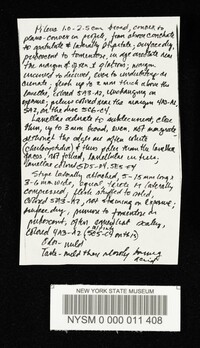 Pileus 1.0-2.5cm broad, convex or
plano-convex in profile, from above conchate
to spatulate & laterally stipitate; surface dry,
pubescent to tomentose, in age
the margin & glabrous; margin
incurved to incised, even to undulating or
crenate; flesh up to 2 mm thick above the
lamellae, colored 4A3-A2, unchanging on
exposure; pileus colored near the margin 4A3-A2,
5A2, in the disc 5C6-C4.
Lamellae adnate to subdecurrent, close
thin, up to 3 mm broad, even, not marginate
although the edges are often white
(cheilocystidia) & thus paler than the lamellar
faces, not forked, lamellulae in tiers,
lamellae colored 5D5-D4, 5C5-C4
Stipe laterally attached, 5-15mm long x
3-6mm wide, equal, terete to laterally
compressed, flesh stuffed to solid,
colored 5A3-A2, not staining on exposure,
surface dry, pruinose to tomentose or
pubescent, often squamulose
colored 4A3-A2 (5C5-C4 within)
Odor: mild
Taste: mild then slowly burning
NEW YORK STATE MUSEUM
NYSM 0 000 011 408